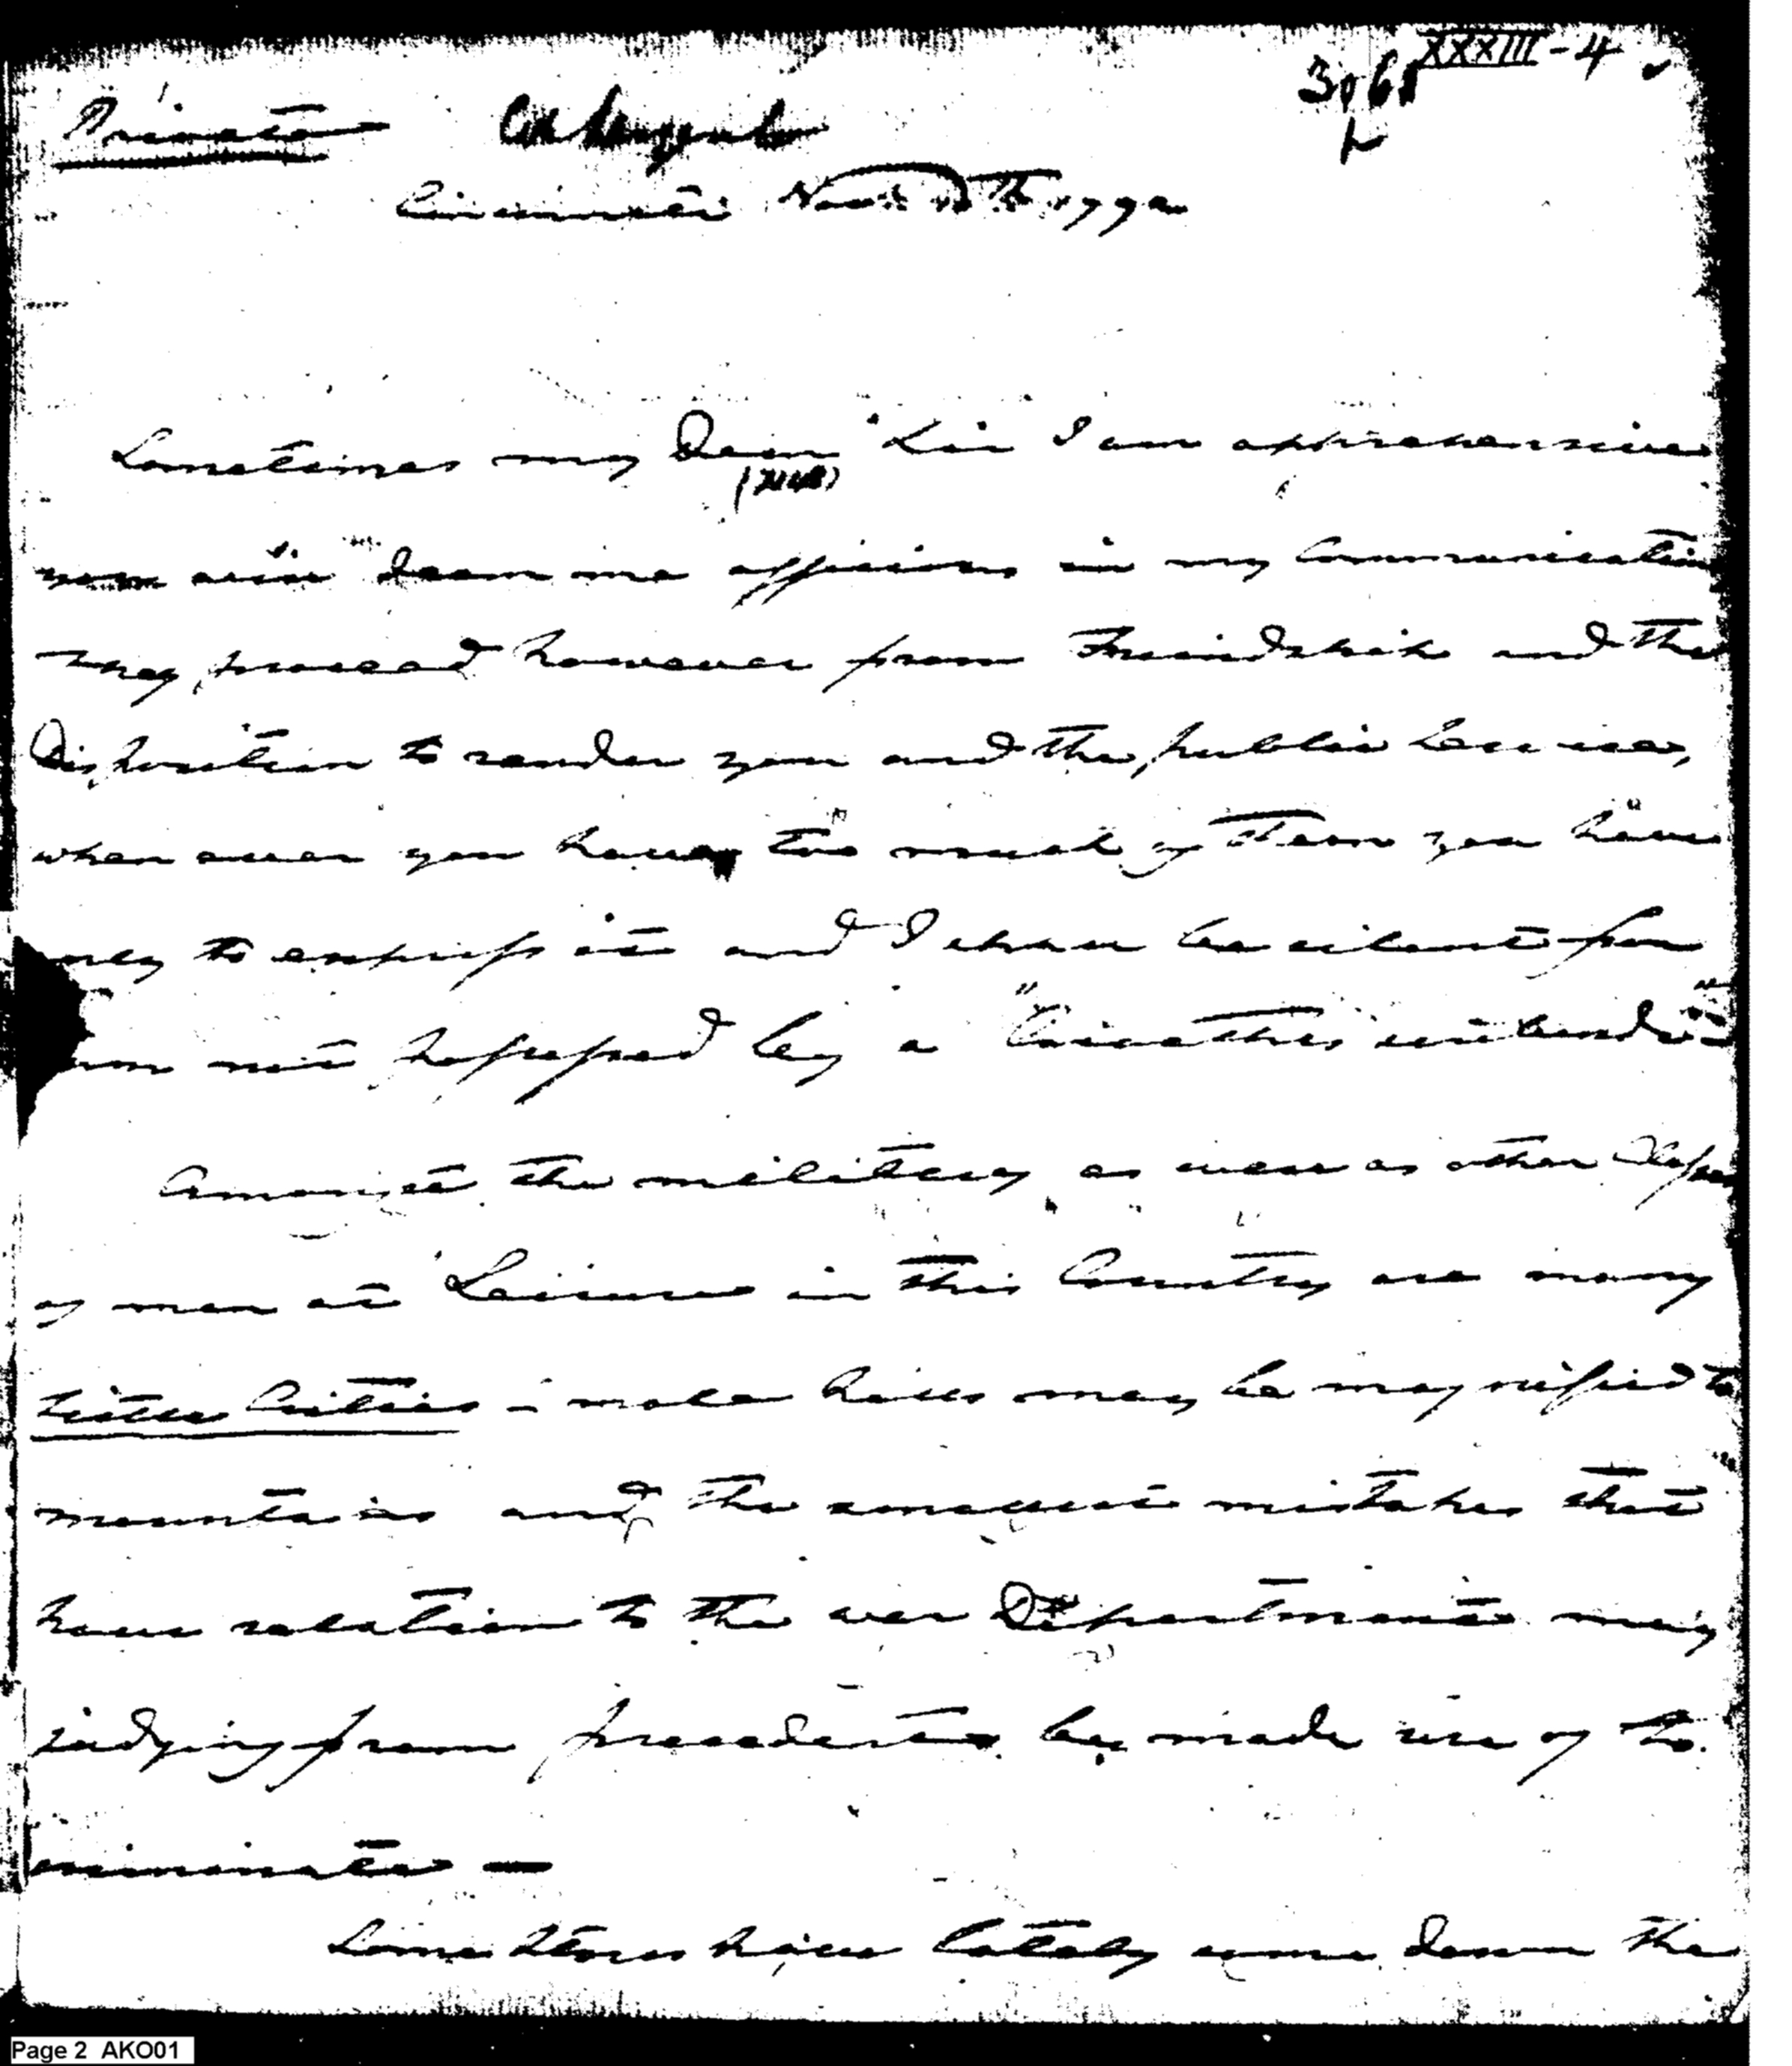 XXXIII-4
Private Col Sargent
Cincinnati Nov 1792
Sometimes my Dear Sir I am apprehensive
you will deem me officious in my Communication
they proceed however from Friendship and the
Disposition to render you and the public Service,
when ever you have too much of them you have
only to express it and I shall be silent for
am not possessed by a "Cacoethes scribendi"
Amongst the military as well as other Classes
of men at Leisure in this Country are many
little Critics - mole hills may be magnified to
mountains and the smallest mistakes that
have relation to the war Department may
judging from precedents be made use of to
criminate —
Some Stores have lately come down the
Page 2 AKO01